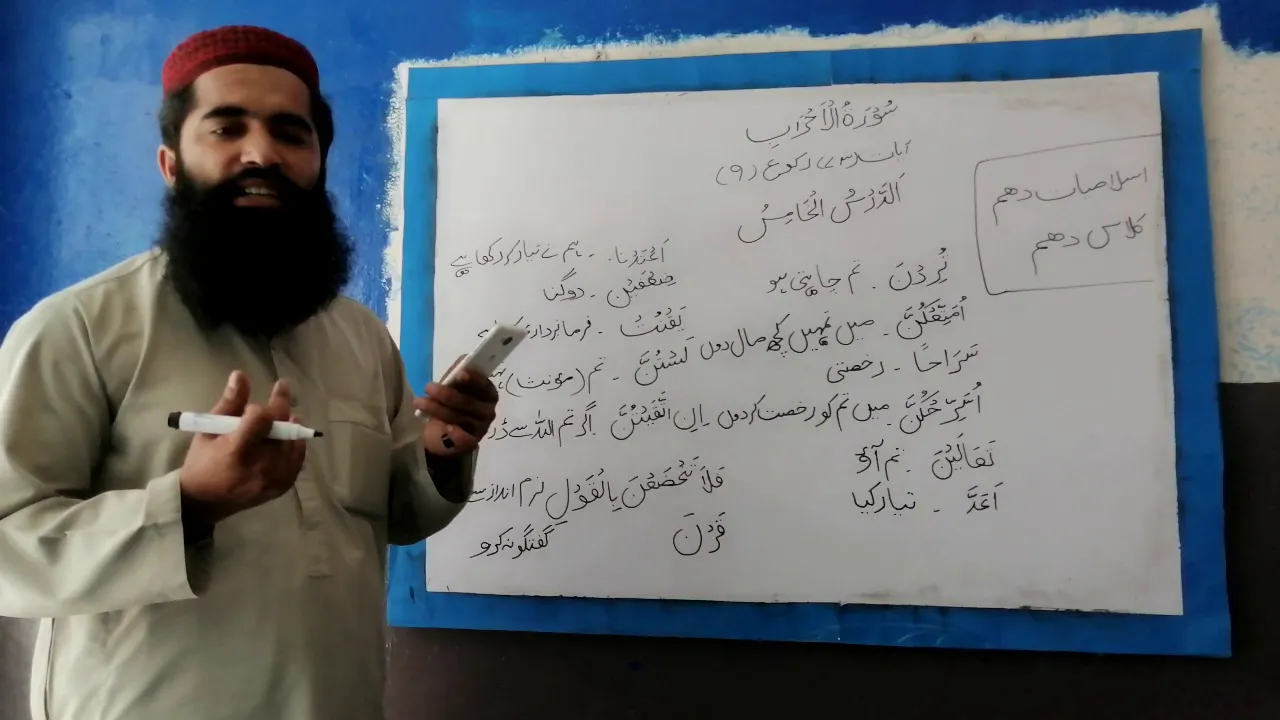 سُوْرَةُ الْاَحْزَابِ
آیات (۷۳) رکوع (۹)
اَلدَّرْسُ الْخَامِسُ
اسلامیات دھم
کلاس دھم
تُرِدْنَ ۔ تم چاہتی ہو
اُمَتِّعْكُنَّ ۔ میں تمہیں کچھ مال دوں
سَرَاحًا ۔ رخصتی
اُسَرِّحْكُنَّ ۔ میں تم کو رخصت کر دوں
تَعَالَيْنَ ۔ تم آؤ
اَعَدَّ ۔ تیار کیا
اَعْتَدْنَا ۔ ہم نے تیار کر رکھا ہے
ضِعْفَيْنِ ۔ دوگنا
يَقْنُتْ ۔ فرمانرداری
لَسْتُنَّ ۔ تم (مؤنث)
اِنِ اتَّقَيْتُنَّ اگر تم اللہ سے
فَلَا تَخْضَعْنَ بِالْقَوْلِ نرم انداز سے
گفتگو نہ کرو
قَرْنَ